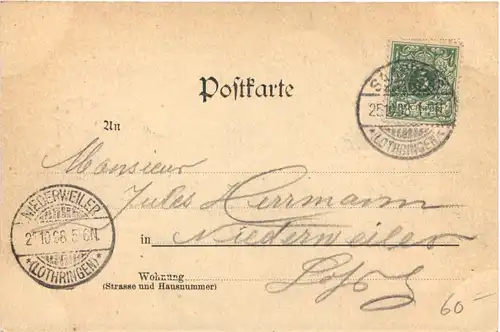 Postkarte
An
Monsieur
Jules Herrmann
in Niederweiler
Wohnung
(Strasse und Hausnummer)
NIEDERWEILER
25.10.98.5-6N.
*(LOTHRINGEN)*
25.10.98
*(LOTHRINGEN)*
60-